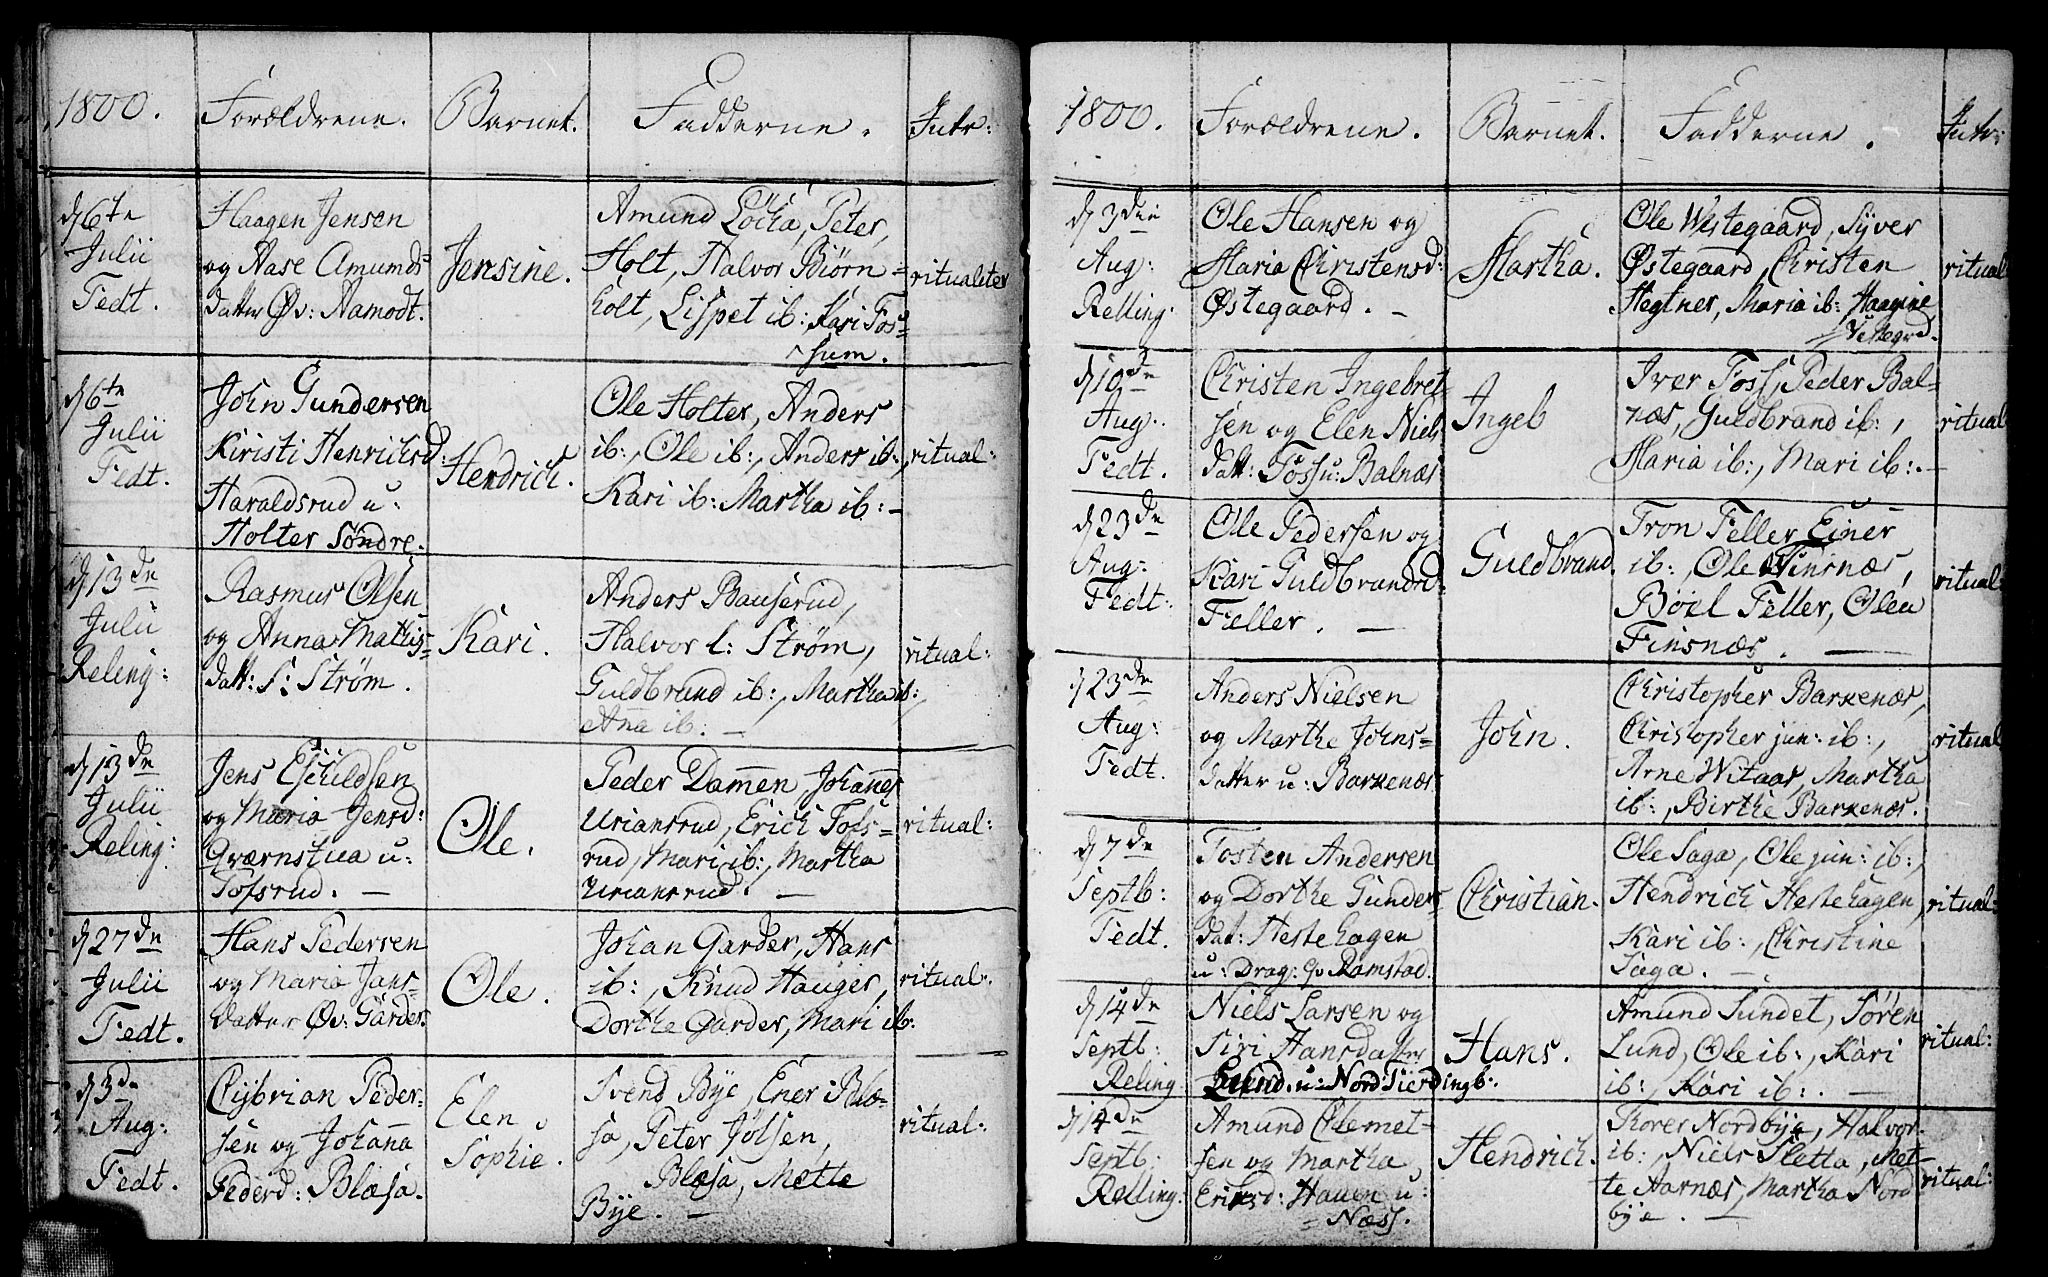 1800. Forældrene. Barnet. Fadderne. Intr:
d 6te Julii Fedt.
Haagen Jensen
og Aase Amunds
datter Øv: Aamodt.
Jensine.
Amund Löcka, Peter
Holt, Halvor Biørn=
holt, Lispet ib: Kari Fos=
sum.
ritualiter
d 6te
Julii
Fedt.
John Gundersen
Kiristi Henrichsd:
Haraldsrud u:
Holter Söndre.
Hendrich.
Ole Holter, Anders
ib:, Ole ib:, Anders ib:,
Kari ib: Martha ib: –
ritual:
d 13de
Julii
Reling:
Rasmus Olsen
og Anna Mathis=
datt: S: Strøm.
Kari.
Anders Bauserud,
Halvor l: Strøm,
Guldbrand ib:, Martha ib:,
Anna ib: –
ritual:
d 13de
Julii
Reling:
Jens Eschildsen
og Maria Jensd:
Qværnstua u:
Tofsrud. –
Ole.
Peder Damen, Johannes
Uriansrud, Erich Tofs=
rud, Mari ib:, Martha
Uriansrud. –
ritual:
d 27de
Julii
Fedt.
Hans Pedersen
og Maria Jans
datter Øv: Garder.
Ole.
Johan Garder, Hans
ib:, Knud Hauger,
Dorthe Garder, Mari ib:
ritual:
d 3de
Aug:
Fedt.
Cybrian Peder=
sen og Johana
Pedersd: Blæsa.
Elen
Sophie.
Svend Bye, Ener Blæ=
sa, Peter Jölsen,
Blæsa, Mette
Bye. –
ritual:
1800. Forældrene. Barnet. Fadderne. Intr:
d 3die
Aug:
Relling:
Ole Hansen og
Maria Christensd:
Østegaard. –
Martha.
Ole Westegaard, Syver
Østegaard, Christen
Hegtner, Maria ib:, Haagine
Vestegrd.
ritual
d 10de
Aug:
Fedt.
Christen Ingebret
sen og Elen Niels
datt: Foss u: Balnæs
Ingeb
Iver Foss, Peder Bal=
næs, Guldbrand ib:,
Maria ib:, Mari ib:. –
ritual
d 23de
Aug:
Fedt:
Ole Pedersen og
Kari Guldbrandsd:
Feller. –
Guldbrand.
Tron Feller Einer
ib:, Ole Finsnæs,
Böel Feller, Olea
Finsnæs. –
ritual
d 23de
Aug:
Fedt.
Anders Nielsen
og Marthe Johns=
datter u: Barkenæs
John.
Christopher Barkenæs,
Christopher jun: ib:,
Arne Witaas, Martha
ib:, Birthe Barkenæs.
ritual
d 7de
Septb:
Fedt.
Tosten Andersen
og Dorthe Gunders
dat: Hestehagen
u: Drag: Qv Ramstad.
Christian.
Ole Saga, Ole jun: ib:,
Hendrich Hestehagen,
Kari ib:, Christine
Saga. –
ritual:
d 14de
Septb:
Reling
Niels Larsen og
Siri Hansdatter
Lund u: Nord: Tierdingb:.
Hans.
Amund Sundet, Sören
Lund, Ole ib:, Kari
ib:, Kari ib:. –
ritual:
d 14de
Septb:
Relling:
Amund Clemet=
sen og Martha
Eriksd: Hauen u:
= Næss.
Hendrich.
Thorer Nordbye, Halvor
ib:, Niels Sletta, Met=
te Aarnæs, Martha Nord
bye. –
ritual: